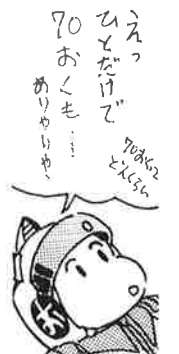 えっ
ひとだけで
70おくも…
ありゃりゃ、
70おくって
どんくらい